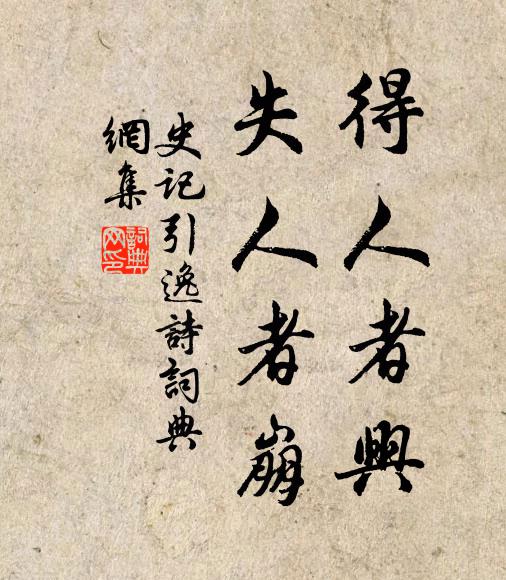 得人者興
失人者崩
史記引逸詩詞典
網集
詞典
网印